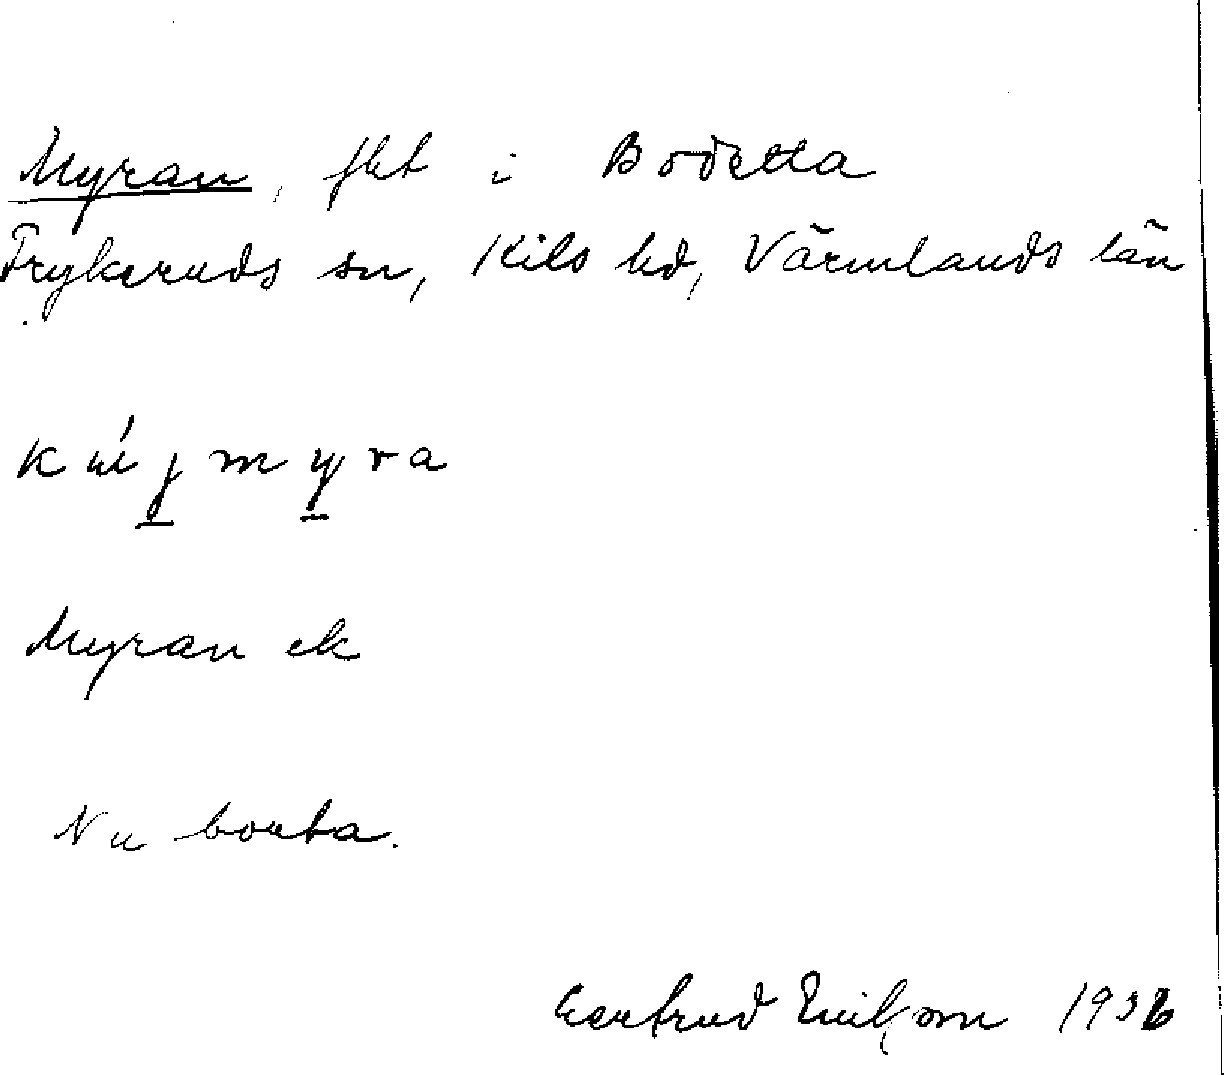 Myran, fht i Bodetta
Frykeruds sn, Kils hd, Värmlands län
Myran ek
Nu borta.
Gertrud Eriksson 1936